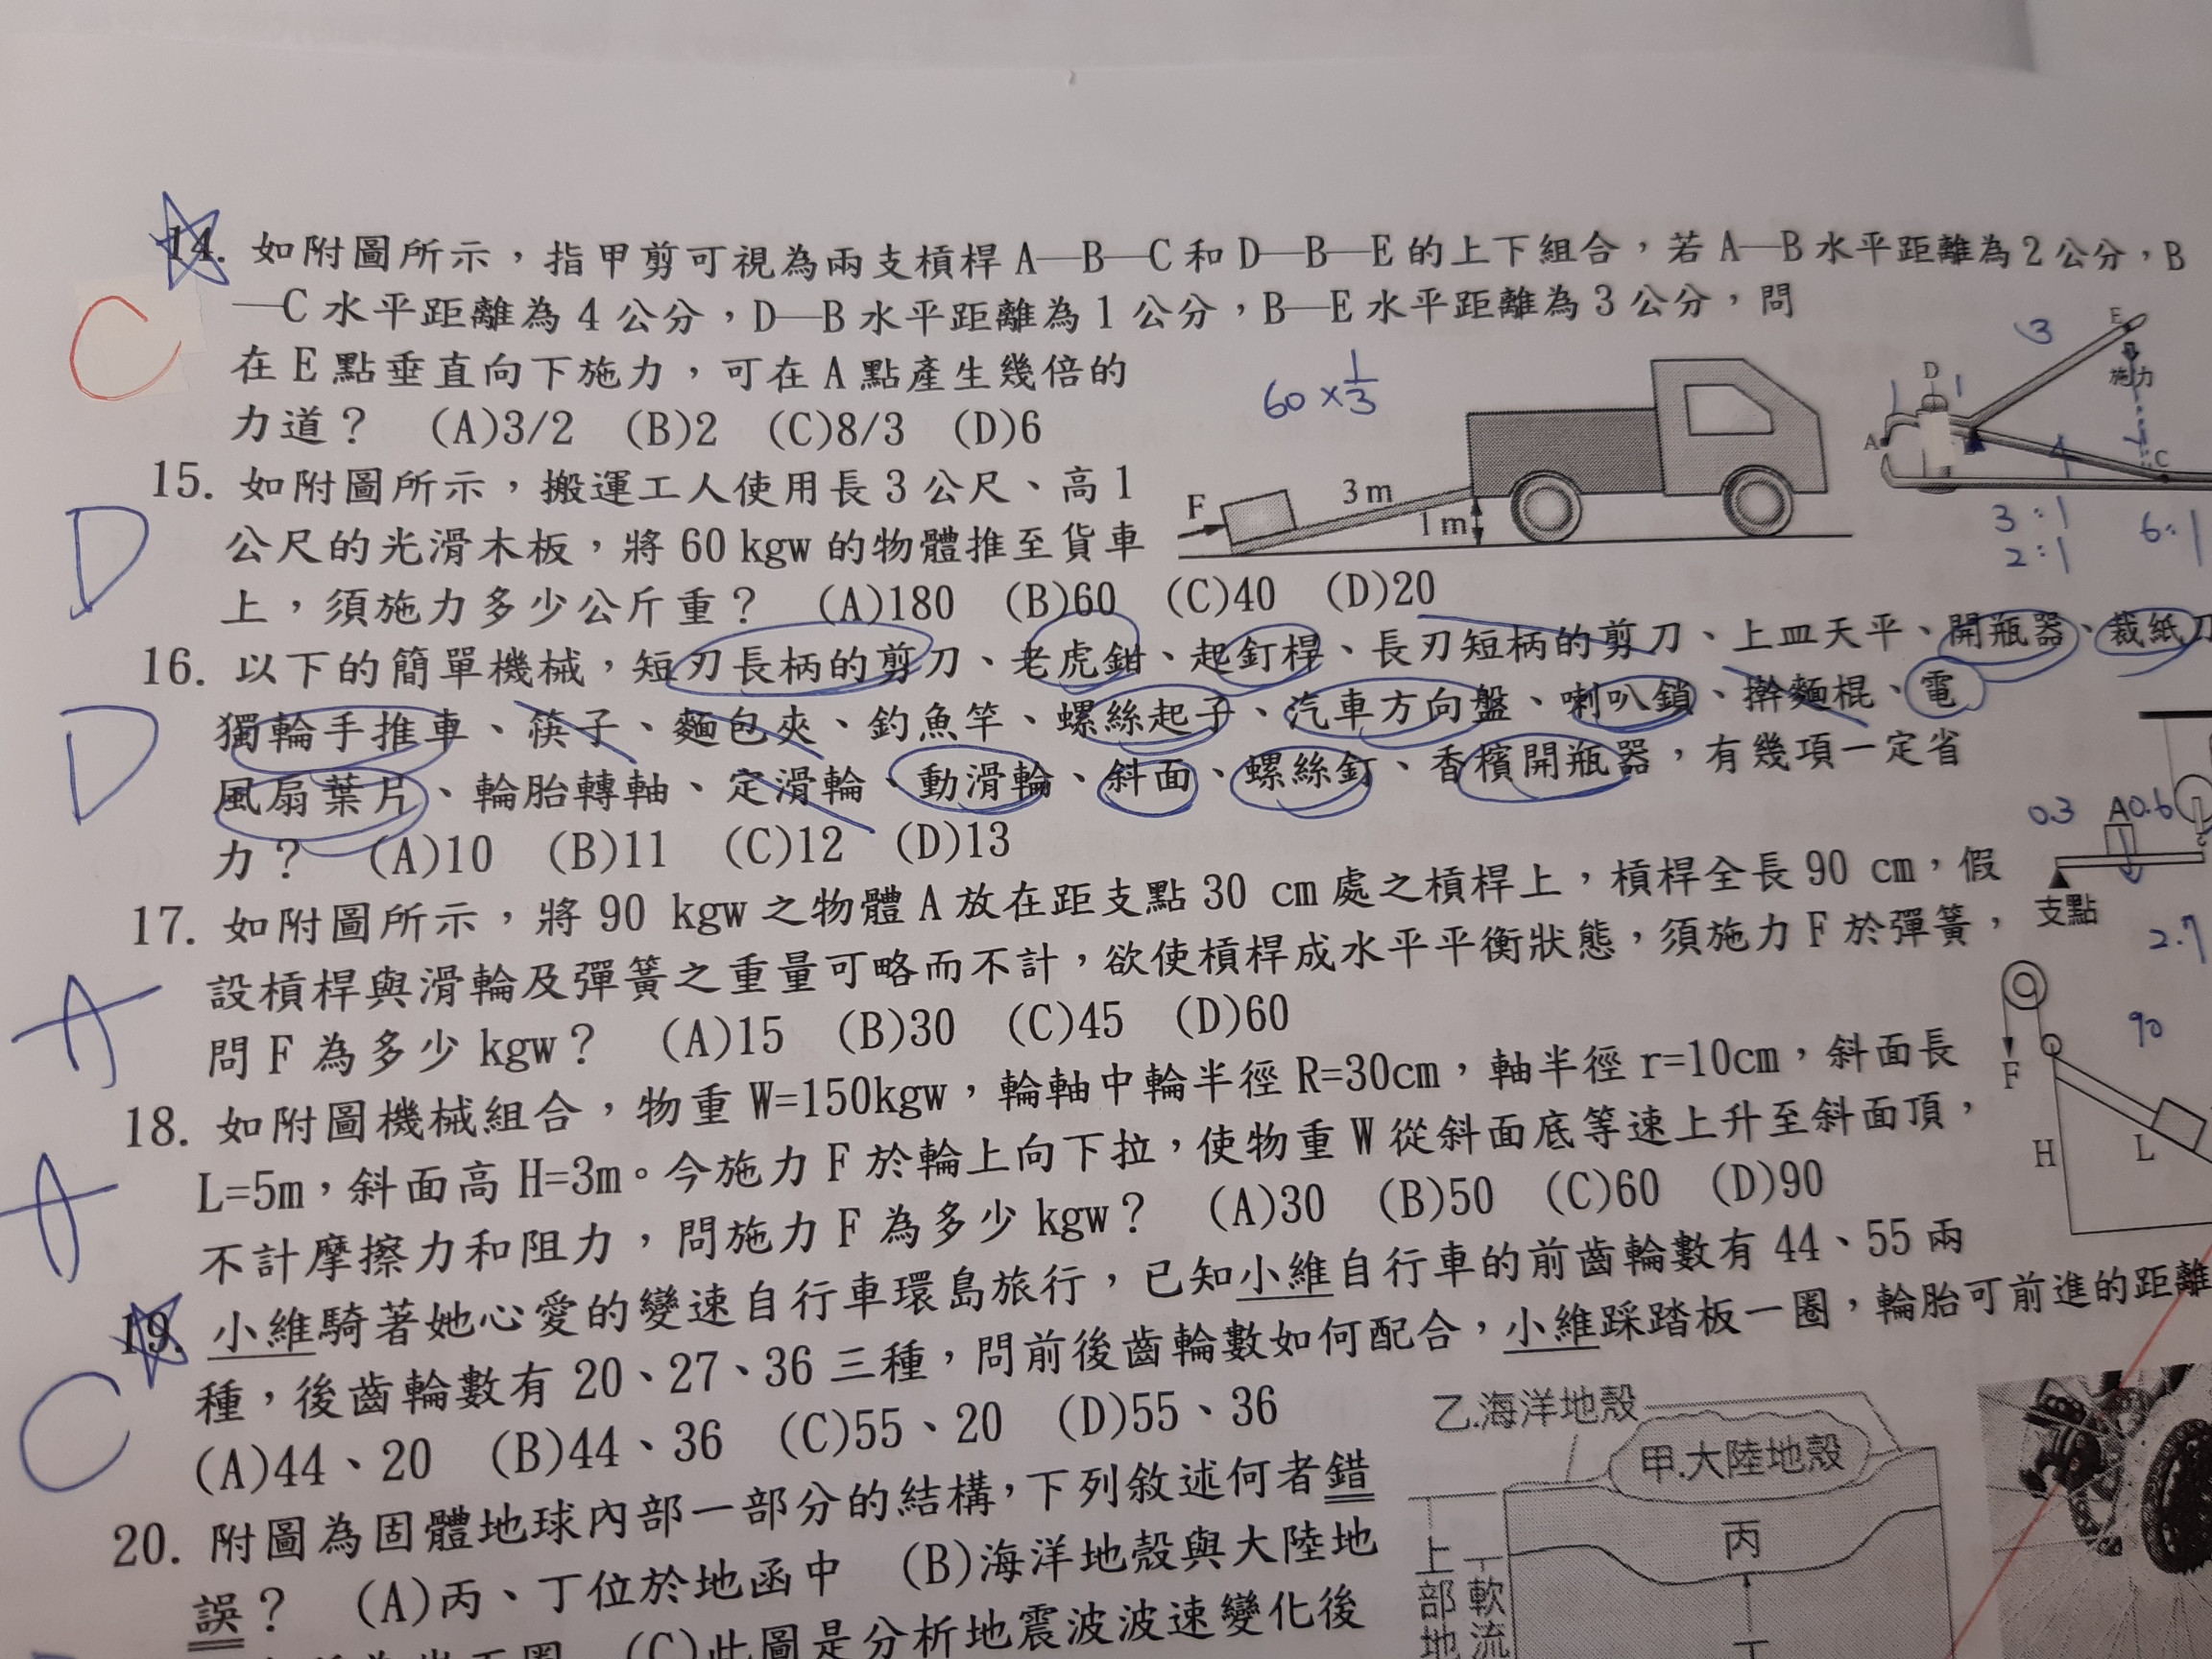 14. 如附圖所示，指甲剪可視為兩支槓桿 A—B—C 和 D—B—E 的上下組合，若 A—B 水平距離為 2 公分，B
—C 水平距離為 4 公分，D—B 水平距離為 1 公分，B—E 水平距離為 3 公分，問
在 E 點垂直向下施力，可在 A 點產生幾倍的
力道？ (A)3/2 (B)2 (C)8/3 (D)6
C
60 × 1/3
F
3 m
1 m
3
E
施力
D
1
1
A
4
C
3:1
2:1
6:1
15. 如附圖所示，搬運工人使用長 3 公尺、高 1
公尺的光滑木板，將 60 kgw 的物體推至貨車
上，須施力多少公斤重？ (A)180 (B)60 (C)40 (D)20
D
16. 以下的簡單機械，短刃長柄的剪刀、老虎鉗、起釘桿、長刃短柄的剪刀、上皿天平、開瓶器、裁紙刀
獨輪手推車、筷子、麵包夾、釣魚竿、螺絲起子、汽車方向盤、喇叭鎖、擀麵棍、電
風扇葉片、輪胎轉軸、定滑輪、動滑輪、斜面、螺絲釘、香檳開瓶器，有幾項一定省
力？ (A)10 (B)11 (C)12 (D)13
D
0.3
A
0.6
支點
17. 如附圖所示，將 90 kgw 之物體 A 放在距支點 30 cm 處之槓桿上，槓桿全長 90 cm，假
設槓桿與滑輪及彈簧之重量可略而不計，欲使槓桿成水平平衡狀態，須施力 F 於彈簧，
問 F 為多少 kgw？ (A)15 (B)30 (C)45 (D)60
A
90
F
H
L
18. 如附圖機械組合，物重 W=150kgw，輪軸中輪半徑 R=30cm，軸半徑 r=10cm，斜面長
L=5m，斜面高 H=3m。今施力 F 於輪上向下拉，使物重 W 從斜面底等速上升至斜面頂，
不計摩擦力和阻力，問施力 F 為多少 kgw？ (A)30 (B)50 (C)60 (D)90
A
19. 小維騎著她心愛的變速自行車環島旅行，已知小維自行車的前齒輪數有 44、55 兩
種，後齒輪數有 20、27、36 三種，問前後齒輪數如何配合，小維踩踏板一圈，輪胎可前進的距離
(A)44、20 (B)44、36 (C)55、20 (D)55、36
C
乙.海洋地殼
甲.大陸地殼
丙
丁
上部地
軟流
20. 附圖為固體地球內部一部分的結構，下列敘述何者錯
誤？ (A)丙、丁位於地函中 (B)海洋地殼與大陸地
(C)此圖是分析地震波波速變化後